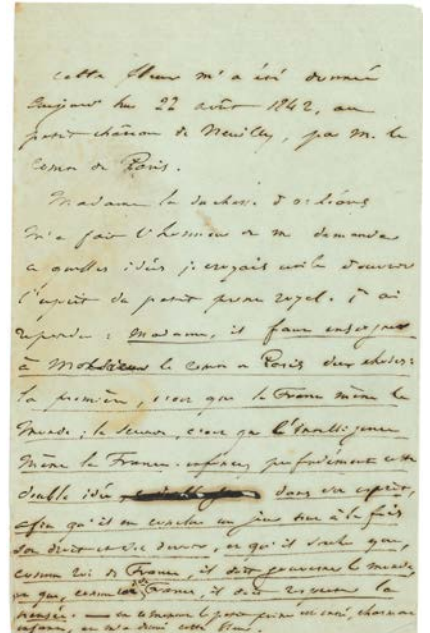 cette fleur m'a été donnée
aujourd'hui 22 août 1842, au
petit château de Neuilly, par M. le
comte de Paris.
Madame la duchesse d'Orléans
m'a fait l'honneur de me demander
à quelles idées je croyais utile d'ouvrir
l'esprit du petit prince royal. J'ai
répondu : Madame, il faut enseigner
à Monsieur le comte de Paris deux choses :
la première, c'est que la France mène le
monde ; la seconde, c'est que l'intelligence
mène la France. enfoncez profondément cette
double idée dans son esprit,
afin qu'il en conclue un jour tout à la fois
son droit et son devoir, et qu'il sache que,
comme roi de France, il doit gouverner le monde,
et que, comme roi de France, il doit respecter la
pensée. — en ce moment le petit prince est entré, charmant
enfant, et m'a donné cette fleur.